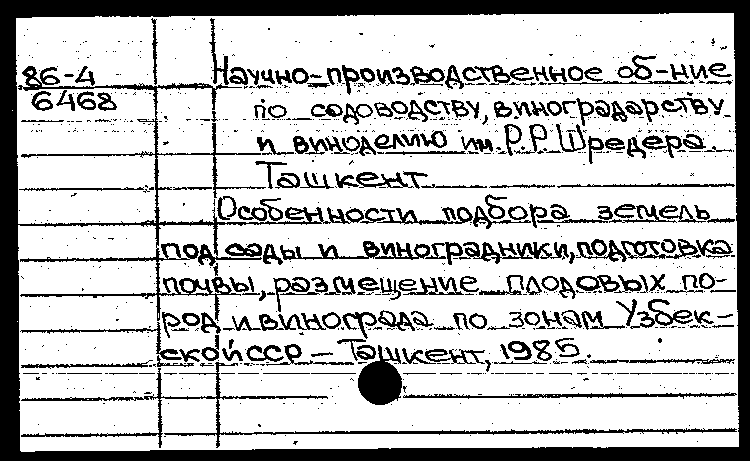 86-4 Научно-производственное об-ние
6468 по садоводству, виноградарству
и виноделию им. Р.Р. Шредера.
Ташкент.
Особенности подбора земель
под сады и виноградники, подготовка
почвы, размещение плодовых по-
род и винограда по зонам Узбек-
ской ССР – Ташкент, 1985.